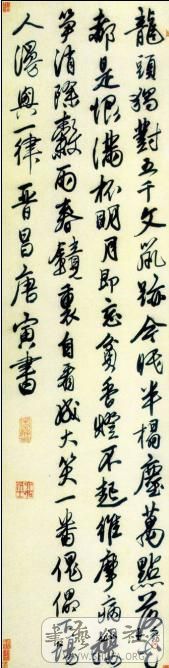 龍頭獨對五千文鼠跡今眠半榻塵萬點落花
都是恨滿杯明月即忘貧香燈不起維摩病櫻
筍消除穀雨春鏡裏自看成大笑一番傀儡下場
人漫興一律晉昌唐寅書